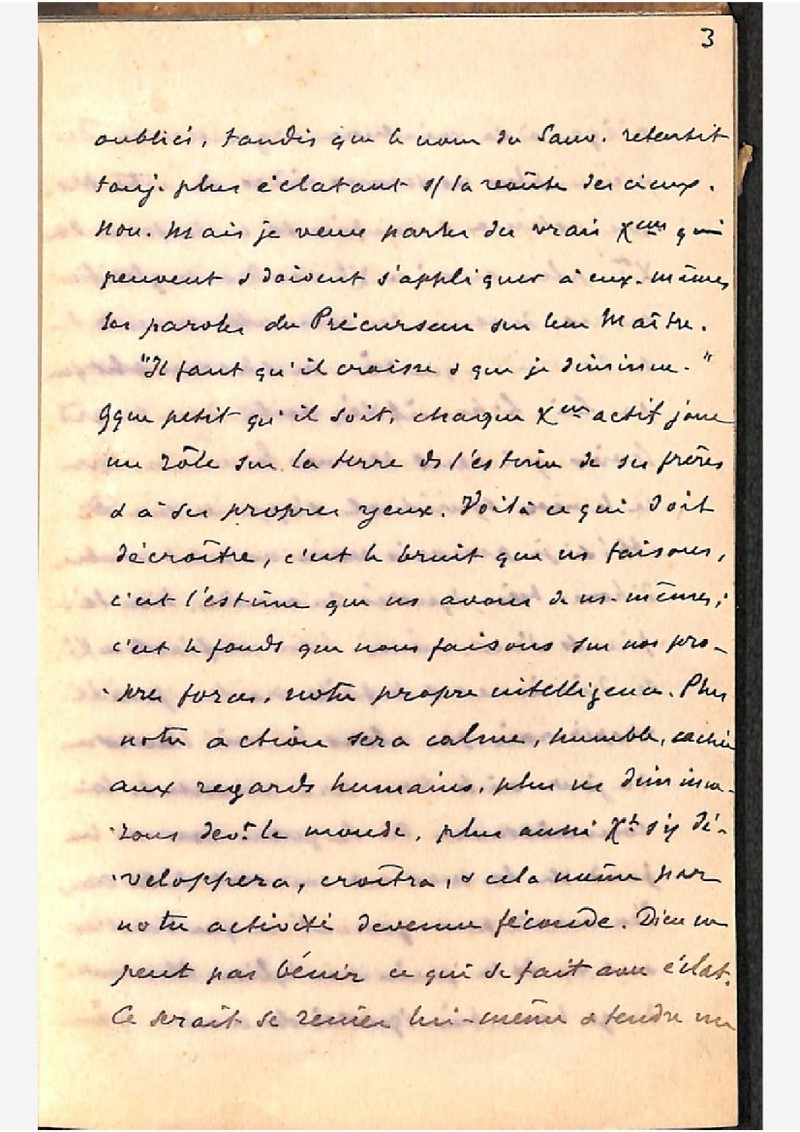 3
oubliés, tandis que le nom du Sauv. retentit
touj. plus éclatant s/ la voûte des cieux.
Non. Mais je veux parler du vrais Xens qui
peuvent & doivent s'appliquer à eux-mêmes
les paroles du Précurseur sur leur Maître.
"Il faut qu'il croisse & que je diminue."
Qque petit qu'il soit, chaque Xen actif joue
un rôle sur la terre ds l'estime de ses frères
& à ses propres yeux. Voilà ce qui doit
décroître, c'est le bruit que ns faisons,
c'est l'estime que ns avons de ns-mêmes;
c'est le fonds que nous faisons sur nos pro-
pres forces, notre propre intelligence. Plus
notre action sera calme, humble, cachée
aux regards humains, plus ns diminue-
rons devt le monde, plus aussi Xt s'y dé-
veloppera, croîtra, & cela même par
notre activité devenue féconde. Dieu ne
peut pas bénir ce qui se fait avec éclat.
Ce serait se renier lui-même & tendre un